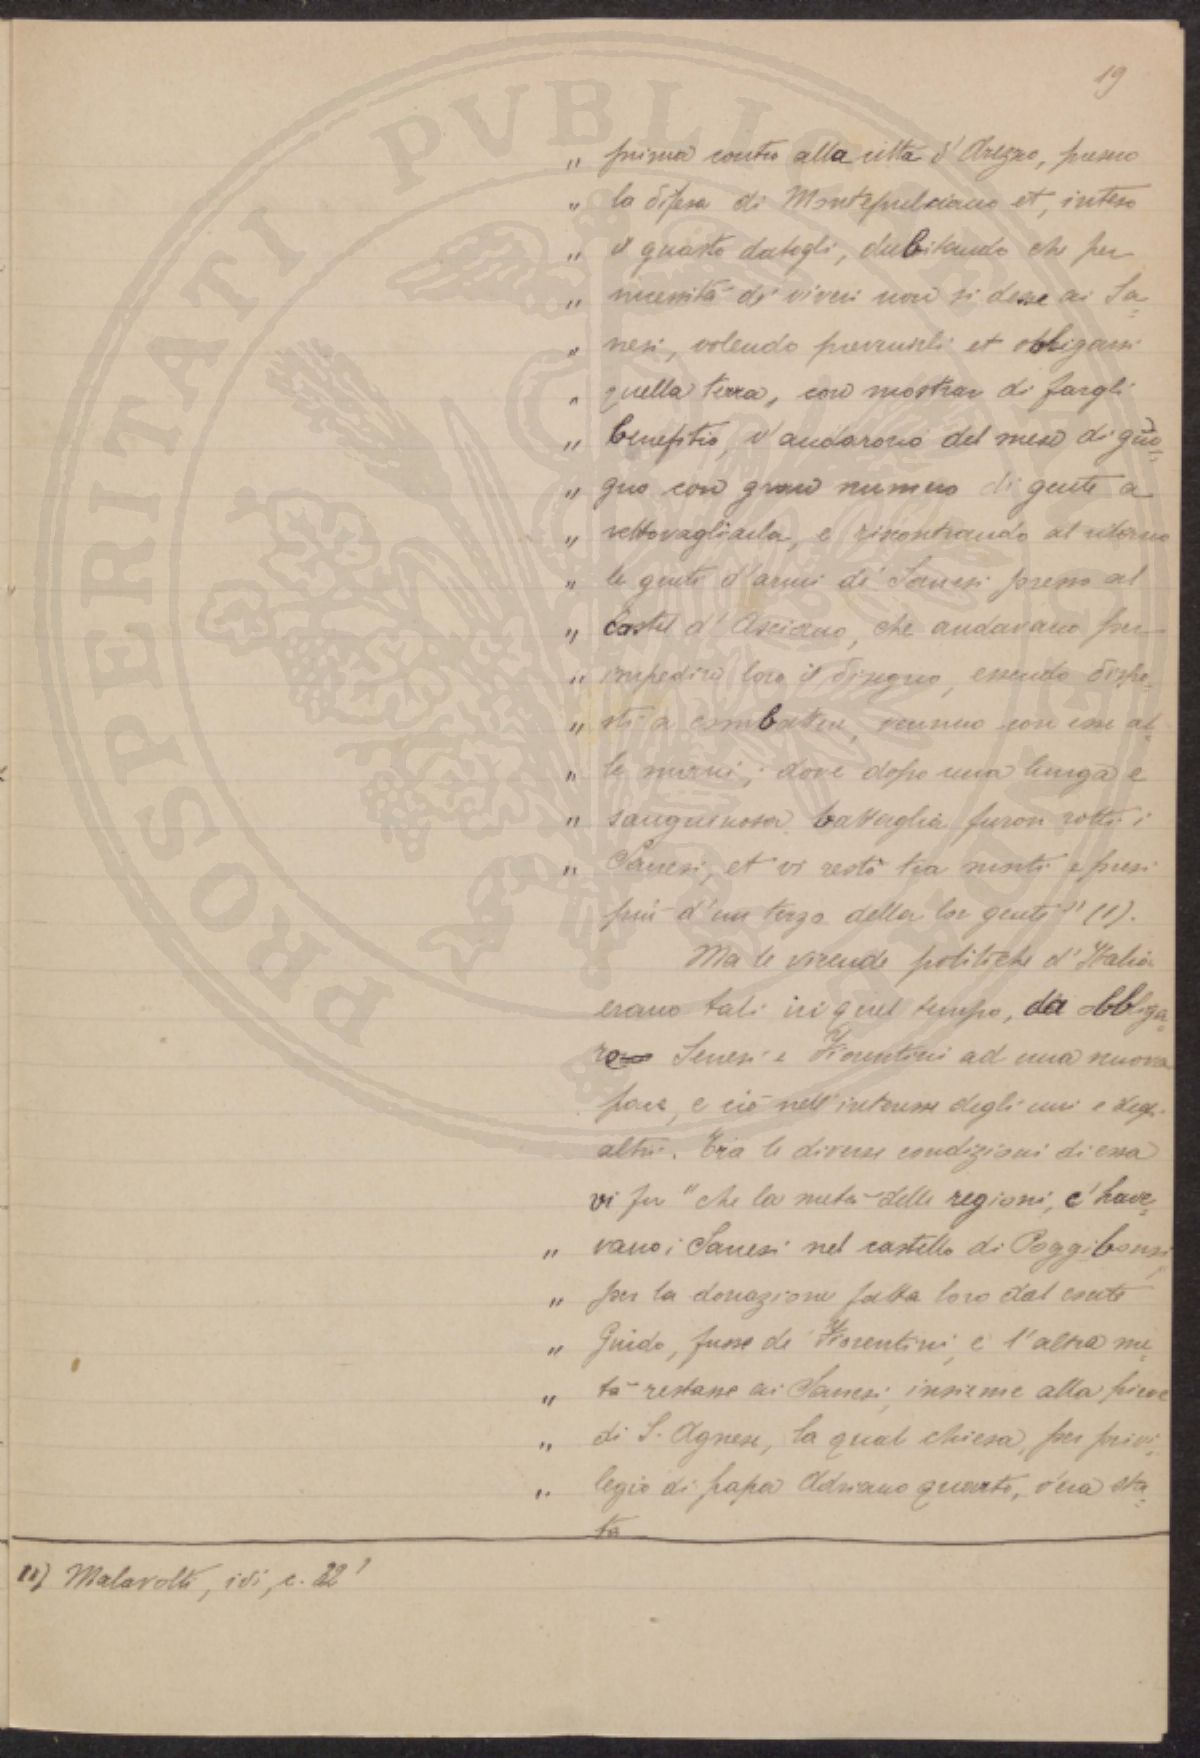 19
" prima contro alla città d'Arezzo, preso
" la difesa di Montepulciano et, inteso
" il guasto datogli, dubitando che per
" necessità de' viveri non si desse ai Sa=
" nesi, volendo prevenirli et obbligarsi
" quella terra, con mostrar di fargli
" benefitio, v'andarono del mese di giu=
" gno con gran numero di gente a
" vettovagliarla, e riscontrando al ritorno
" le genti d'armi de' Sanesi presso al
" Castel d'Asciano, che andavano per
" impedire loro il disegno, essendo dispo=
" sti a combattere, vennero con esse al=
" le mani; dove dopo una lunga e
" sanguinosa battaglia furon rotti i
" Sanesi, et vi restò tra morti e presi
più d'un terzo della lor gente" (1).
Ma le vicende politiche d'Italia
erano tali in quel tempo, da obbliga=
re Senesi e Fiorentini ad una nuova
pace, e ciò nell'interesse degli uni e degli
altri. Tra le diverse condizioni di essa
vi fu "che la metà delle regioni, c'have=
" vano i Sanesi nel castello di Poggibonsi,
" per la donazione fatta loro dal conte
" Guido, fusse de' Fiorentini, e l'altra me=
" tà restasse ai Sanesi, insieme alla pieve
" di S. Agnese, la qual chiesa, per privi=
" legio di papa Adriano quarto, v'era sta=
ta
(1) Malavolti, ivi, c. 22'
PROSPERITATI PUBLICAE